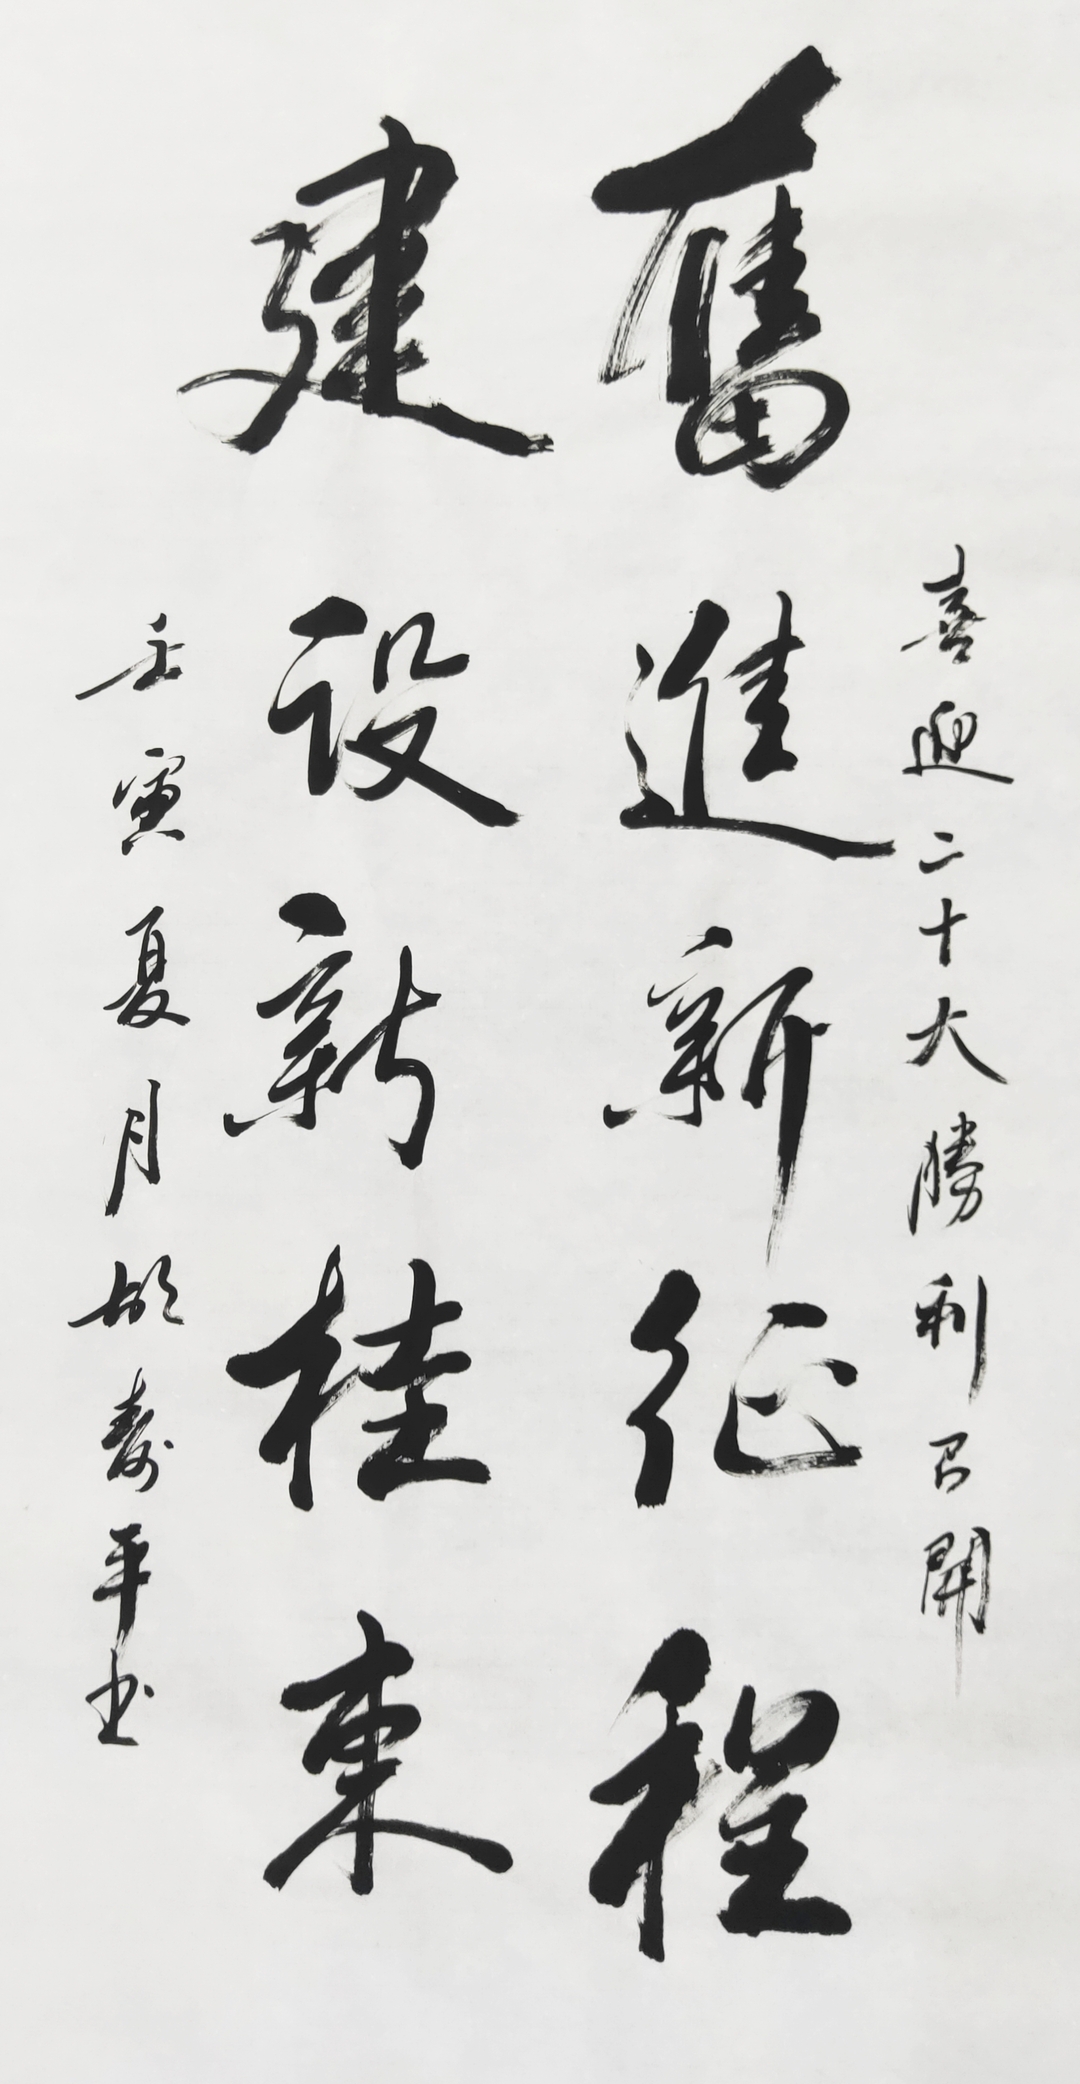 喜迎二十大勝利召開
奮進新征程
建设新桂東
壬寅夏月胡壽平书